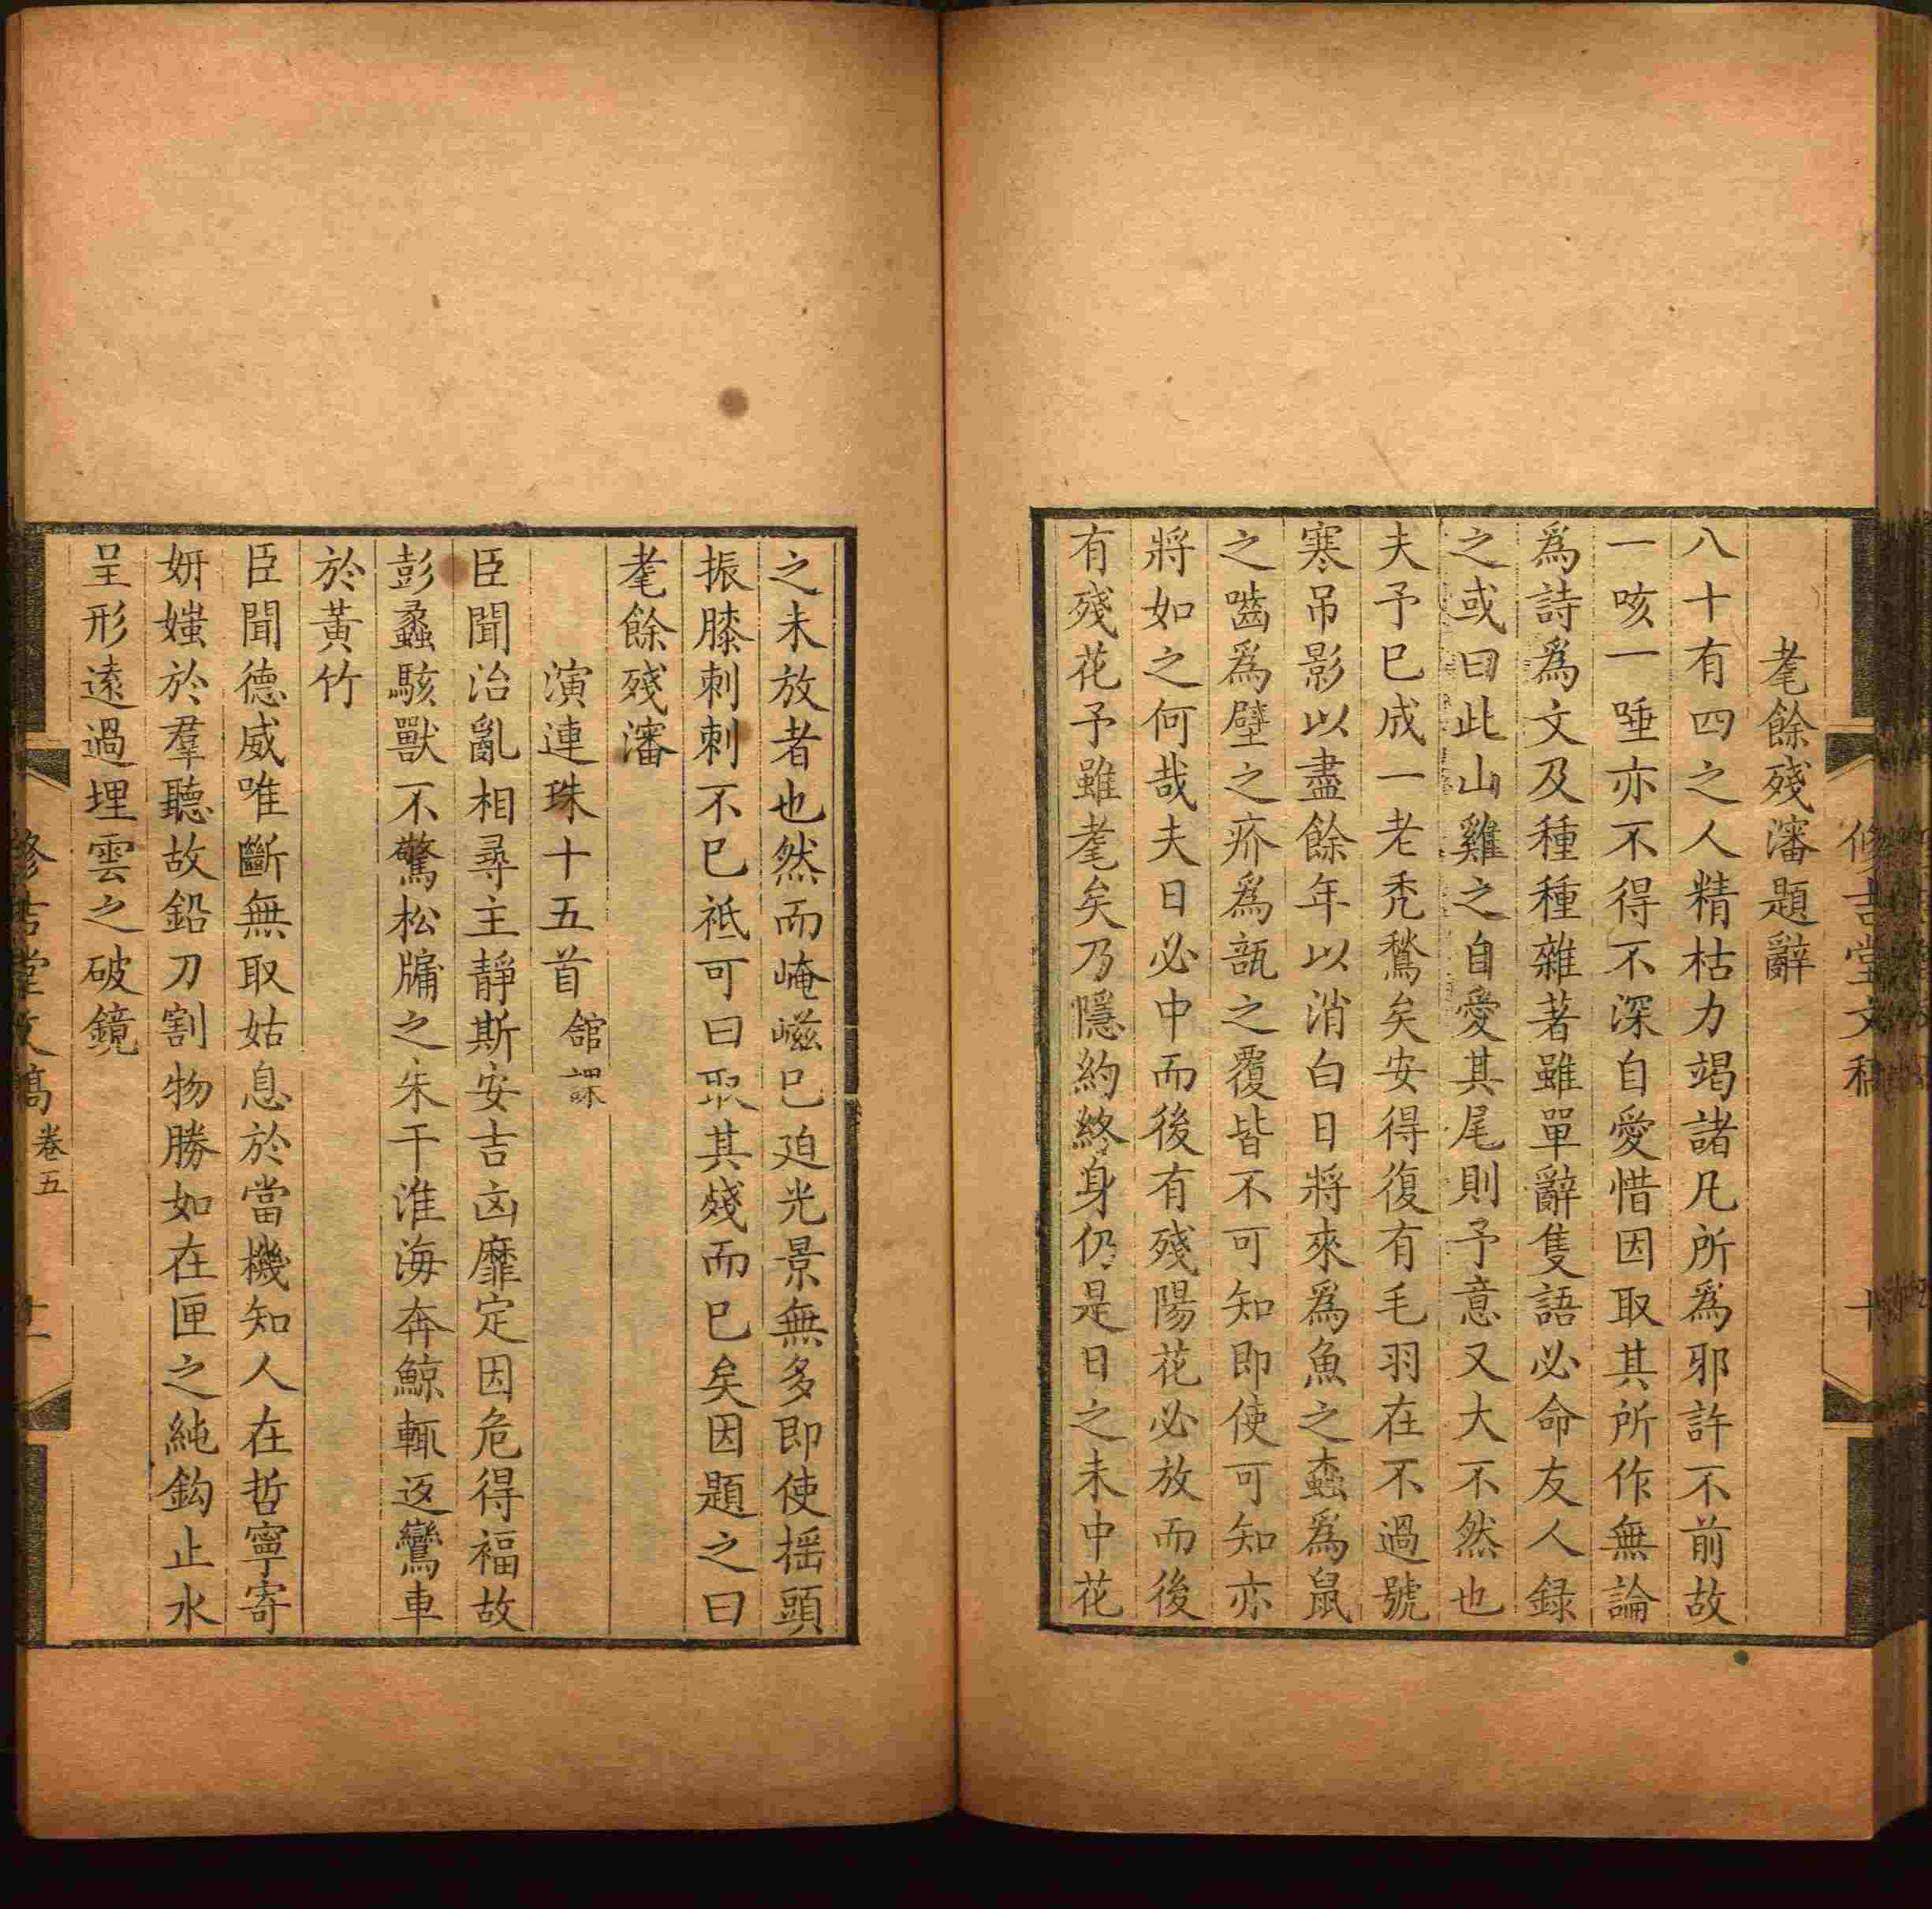 修吉堂文稿
十
耄餘殘瀋題辭
八十有四之人精枯力竭諸凡所爲邪許不前故
一咳一唾亦不得不深自愛惜因取其所作無論
爲詩爲文及種種雜著雖單辭隻語必命友人録
之或曰此山雞之自愛其尾則予意又大不然也
夫予已成一老秃鶖矣安得復有毛羽在不過號
寒吊影以盡餘年以消白日將來爲魚之蟲爲鼠
之嚙爲壁之疥爲瓿之覆皆不可知即使可知亦
將如之何哉夫日必中而後有殘陽花必放而後
有殘花予雖耄矣乃隱約終身仍是日之未中花
之未放者也然而崦嵫已迫光景無多即使揺頭
振膝刺刺不已祗可曰取其殘而已矣因題之曰
耄餘殘瀋
演連珠十五首 館課
臣聞治亂相尋主靜斯安吉凶靡定因危得福故
彭蠡駭獸不驚松牖之朱干淮海奔鯨輒返鸞車
於黃竹
臣聞德威唯斷無取姑息於當機知人在哲寧寄
妍媸於羣聽故鉛刀割物勝如在匣之純鈎止水
呈形遠過埋雲之破鏡
修吉堂文稿
卷五
十一